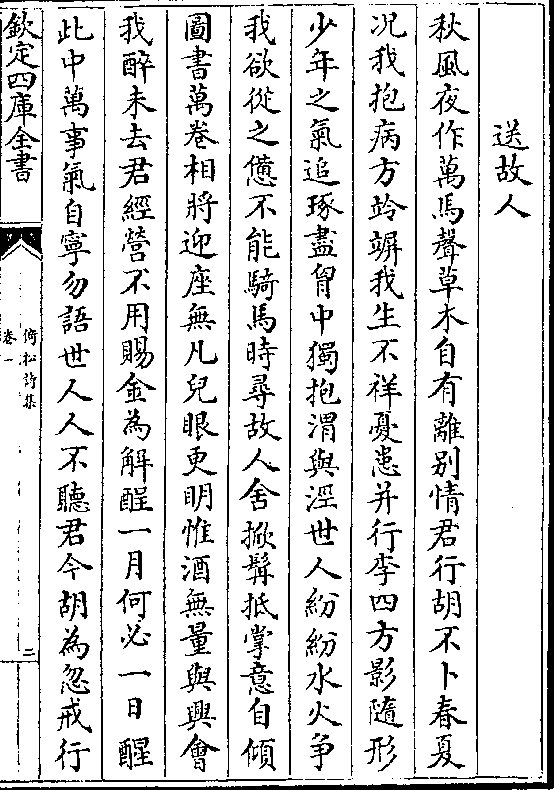 送故人
秋風夜作萬馬聲草木自有離别情君行胡不卜春夏
况我抱病方竛竮我生不祥憂患并行李四方影隨形
少年之氣追琢盡胷中獨抱渭與涇世人紛紛水火争
我欲從之僾不能騎馬時尋故人舍掀髯抵掌意自傾
圖書萬卷相將迎座無凡兒眼更明惟酒無量與興會
我醉未去君經營不用賜金為解酲一月何必一日醒
此中萬事氣自寧勿語世人人不聽君今胡為忽戒行
欽定四庫全書
倚松詩集
卷一
二